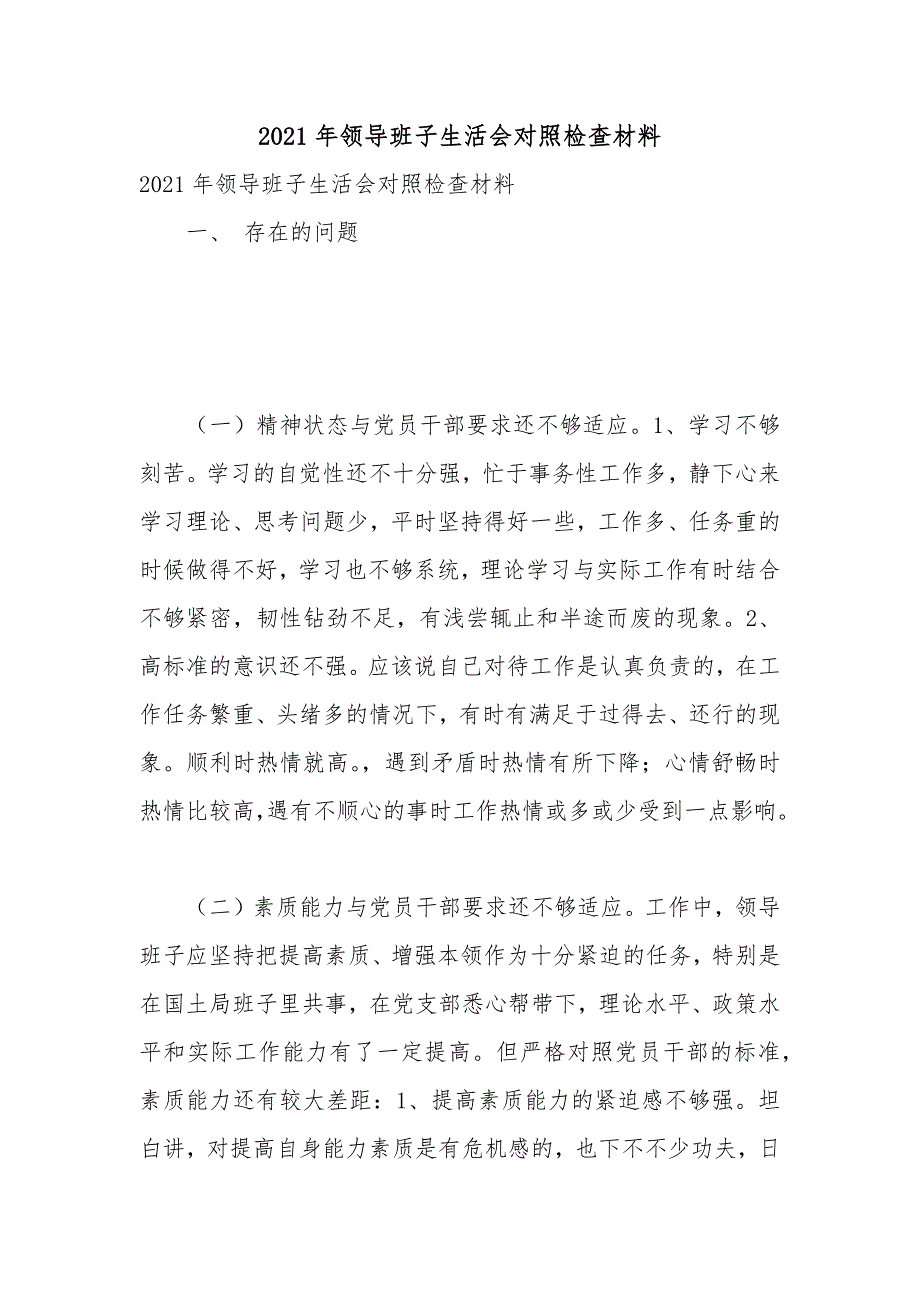 2021 年领导班子生活会对照检查材料
2021 年领导班子生活会对照检查材料
一、 存在的问题
（一）精神状态与党员干部要求还不够适应。1、学习不够
刻苦。学习的自觉性还不十分强，忙于事务性工作多，静下心来
学习理论、思考问题少，平时坚持得好一些，工作多、任务重的
时候做得不好，学习也不够系统，理论学习与实际工作有时结合
不够紧密，韧性钻劲不足，有浅尝辄止和半途而废的现象。2、
高标准的意识还不强。应该说自己对待工作是认真负责的，在工
作任务繁重、头绪多的情况下，有时有满足于过得去、还行的现
象。顺利时热情就高。，遇到矛盾时热情有所下降；心情舒畅时
热情比较高，遇有不顺心的事时工作热情或多或少受到一点影响。
（二）素质能力与党员干部要求还不够适应。工作中，领导
班子应坚持把提高素质、增强本领作为十分紧迫的任务，特别是
在国土局班子里共事，在党支部悉心帮带下，理论水平、政策水
平和实际工作能力有了一定提高。但严格对照党员干部的标准，
素质能力还有较大差距：1、提高素质能力的紧迫感不够强。坦
白讲，对提高自身能力素质是有危机感的，也下不不少功夫，日